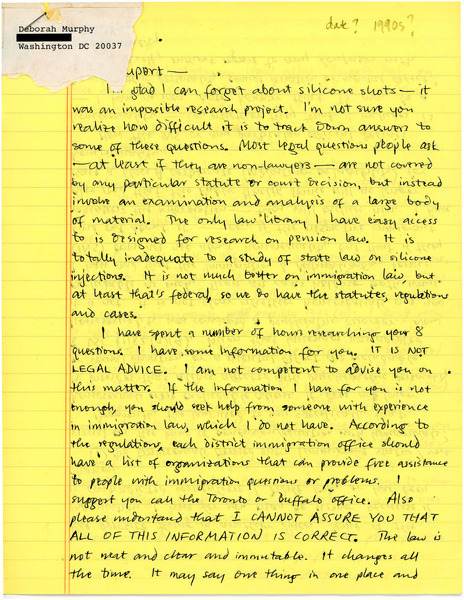 Deborah Murphy
Washington DC 20037
date? 1990s?
Rupert —
I'm glad I can forget about silicone shots — it
was an impossible research project. I'm not sure you
realize how difficult it is to track down answers to
some of these questions. Most legal questions people ask
— at least if they are non-lawyers — are not covered
by any particular statute or court decision, but instead
involve an examination and analysis of a large body
of material. The only law library I have easy access
to is designed for research on pension law. It is
totally inadequate to a study of state law on silicone
injections. It is not much better on immigration law, but
at least that's federal, so we do have the statutes, regulations
and cases.
I have spent a number of hours researching your 8
questions. I have some information for you. IT IS NOT
LEGAL ADVICE. I am not competent to advise you on
this matter. If the information I have for you is not
enough, you should seek help from someone with experience
in immigration law, which I do not have. According to
the regulations, each district immigration office should
have a list of organizations that can provide free assistance
to people with immigration questions or problems. I
suggest you call the Toronto or Buffalo office. Also
please understand that I CANNOT ASSURE YOU THAT
ALL OF THIS INFORMATION IS CORRECT. The law is
not neat and clear and immutable. It changes all
the time. It may say one thing in one place and